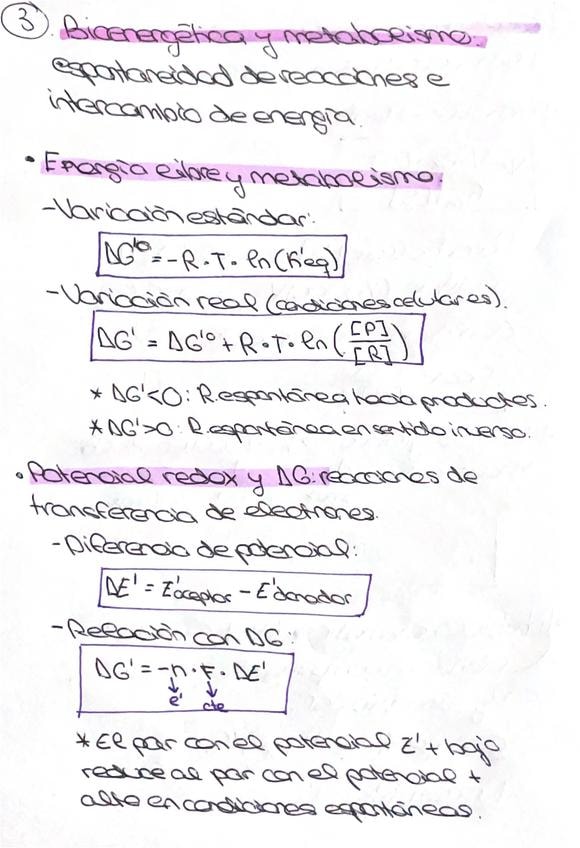 3 Bioenergética y metabolismo.
espontaneidad de reacciones e
intercambio de energía.
• Energía libre y metabolismo.
- Variación estándar:
ΔG'° = -R · T · ln(K'eq)
- Variación real (condiciones celulares).
ΔG' = ΔG'° + R · T · ln([P]/[R])
* ΔG'<0: R. espontánea hacia productos.
* ΔG'>0: R. espontánea en sentido inverso.
• Potencial redox y ΔG: reacciones de
transferencia de electrones.
- Diferencia de potencial:
ΔE' = E'aceptor - E'donador
- Relación con ΔG:
ΔG' = -n · F · ΔE'
↓ ↓
e⁻ cte
* El par con el potencial E' + bajo
reduce al par con el potencial +
alto en condiciones espontáneas.